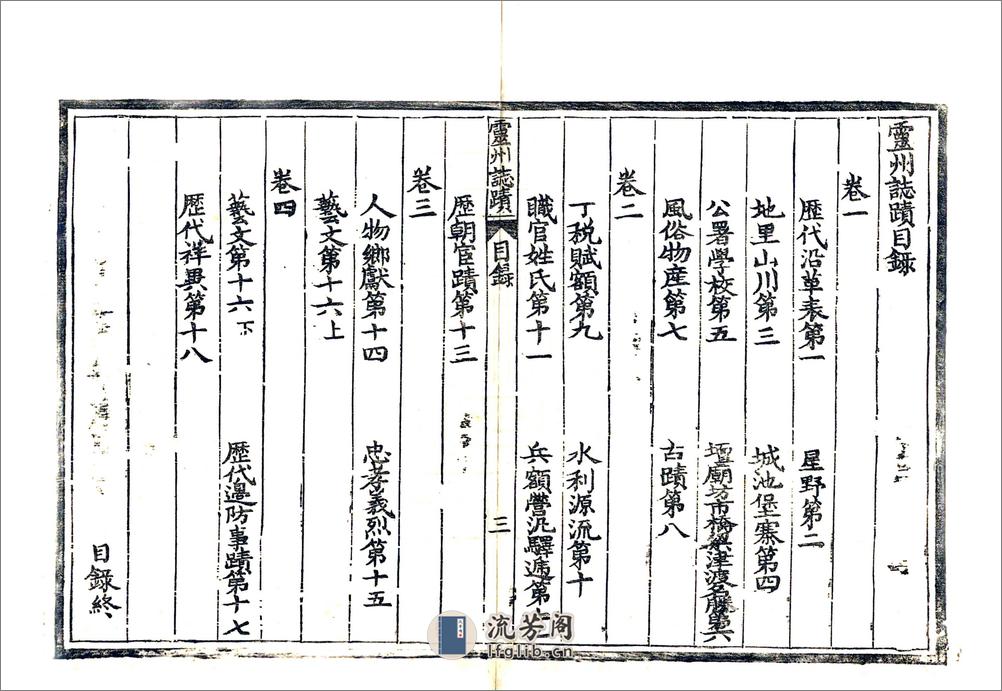 靈州誌蹟目録
卷一
歷代沿革表第一 星野第二
地里山川第三 城池堡寨第四
公署學校第五 壇廟坊市橋梁津渡名勝第六
風俗物産第七 古蹟第八
卷二
丁税賦額第九 水利源流第十
職官姓氏第十一 兵額營汛驛遞第十
歷朝宦蹟第十三
靈州誌蹟 目録 三
卷三
人物鄉獻第十四 忠孝義烈第十五
藝文第十六上
卷四
藝文第十六下 歷代邊防事蹟第十七
歷代祥異第十八
目録終
流芳阁
lfglib.cn